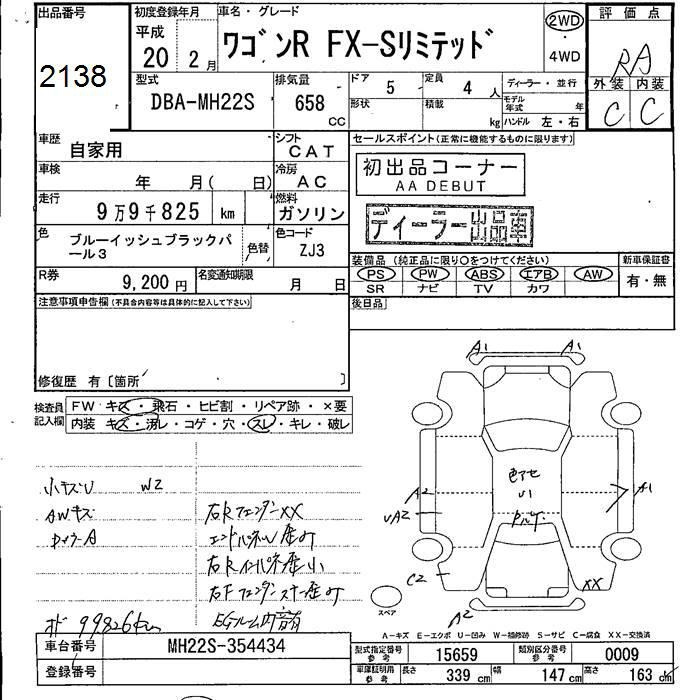 出品番号
2138
初度登録年月
平成
20 2月
車名・グレード
ワゴンR FX-Sリミテッド
2WD
・
4WD
評価点
RA
外装 内装
C C
型式
DBA-MH22S
排気量
658
cc
ドア
5
定員
4人
ディーラー・並行
形状
積載
kg
モデル年式
年
ハンドル 左・右
車歴
自家用
シフト
CAT
セールスポイント(正常に機能するものに限ります)
初出品コーナー
AA DEBUT
ディーラー出品車
車検
年 月( 日)
冷房
AC
走行
9万9千825 km
燃料
ガソリン
色
ブルーイッシュブラックパール3
色替
色コード
ZJ3
装備品 (純正品に限り○をつけてください)
新車保証書
PS PW ABS エアB AW
SR ナビ TV カワ
有・無
R券
9,200円
名変通知期限
月 日
後日品
注意事項申告欄(不具合内容等は具体的に記入して下さい)
修復歴 有〔箇所 〕
検査員記入欄
FW キズ・飛石・ヒビ割・リペア跡・×要
内装 キズ・汚レ・コゲ・穴・スレ・キレ・破レ
小キズU W2
AWキズ
右Rフェンダー××
右Rインパネ歪小
オド 99826km
A1 A1
A2
A1
UA2
C2
××
A2
スペア
A-キズ E-エクボ U-凹み W-補修跡 S-サビ C-腐食 XX-交換済
車台番号
MH22S-354434
登録番号
型式指定番号
参考
15659
類別区分番号
参考
0009
車庫証明用
参考
長さ
339 cm
幅
147 cm
高さ
163 cm